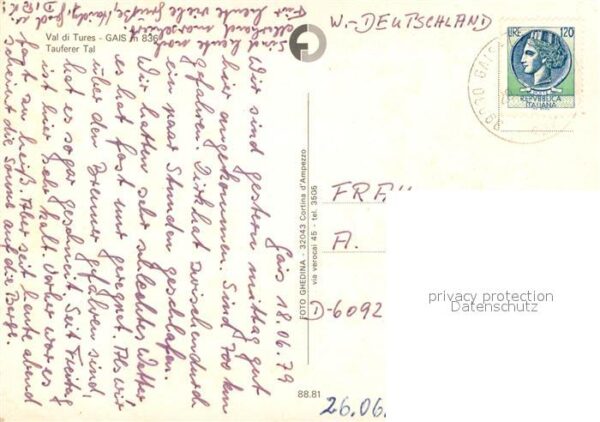 Val di Tures - GAIS m 836
Tauferer Tal
Gais 18.06.79
Wir sind gestern mittag gut
hier angekommen. Sind 700 km
gefahren Dirk hat zwischendurch
ein paar Stunden geschlafen.
Wir hatten sehr schlechtes Wetter
es hat fast nur geregnet. Als wir
über den Brenner gefahren sind,
hat es sogar geschneit. Seit Freitag
ist hier sehr kalt. Vorher war es
fast zu heiß. Aber seit heute abend
scheint die Sonne auf die Berge.
Sind heute nach
Fürs heute viele Grüße
FOTO GHEDINA - 32043 Cortina d'Ampezzo
via verocai 45 - tel. 3506
88.81
W.-DEUTSCHLAND
LIRE 120
REPVBBLICA
ITALIANA
39030 GAIS
FRAU
A.
D-6092
26.06.
privacy protection
Datenschutz